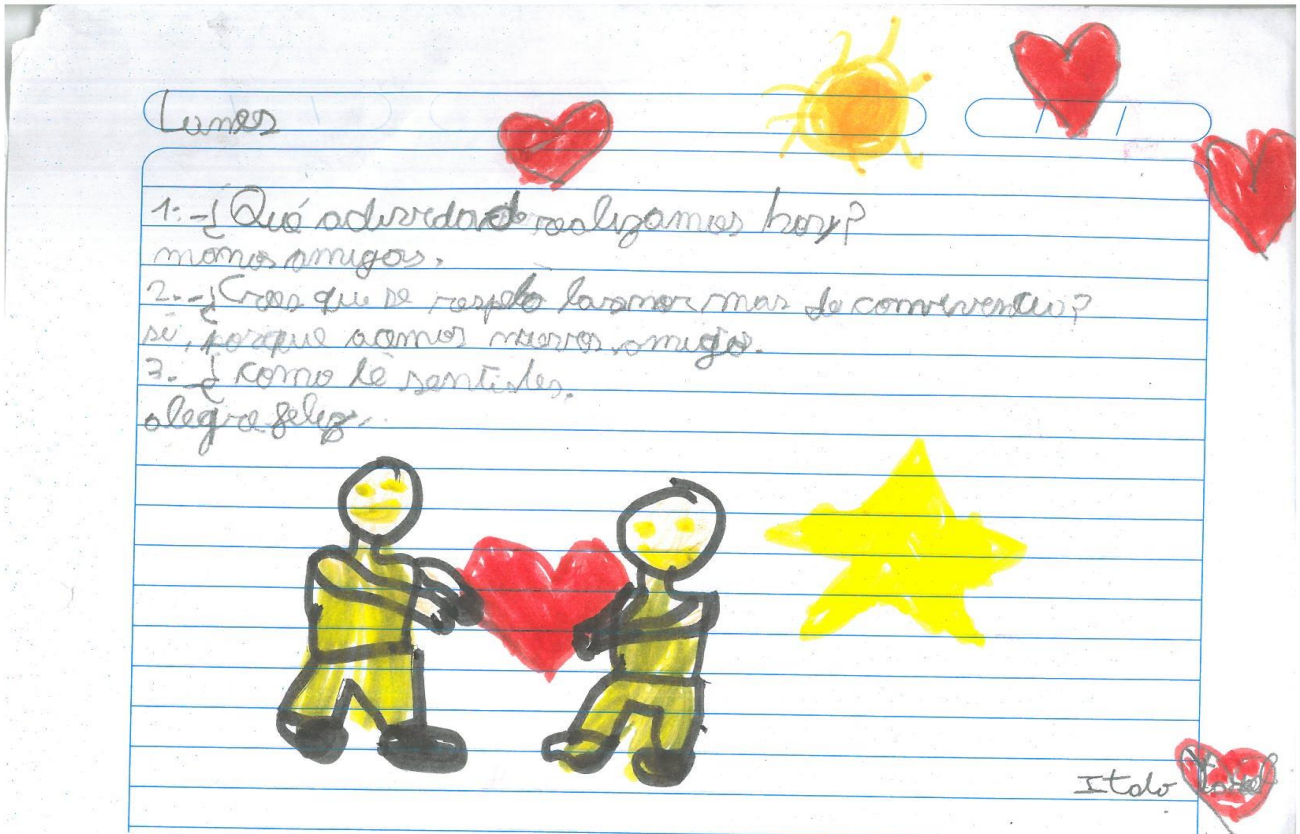 Lunes
1.-¿Qué adividad realizamos hoy?
manos amigas.
2.-¿Crees que se respeto las normas de convivencia?
si, porque somos nuevos amigo.
3.-¿como te sentistes.
alegre feliz.
Italo